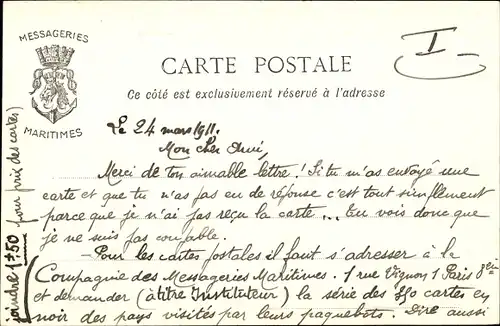 MESSAGERIES
MARITIMES
CARTE POSTALE
Ce côté est exclusivement réservé à l'adresse
I
Le 24 mars 1911.
Mon cher Ami,
Merci de ton aimable lettre! Si tu m'as envoyé une
carte et que tu n'as pas eu de réponse c'est tout simplement
parce que je n'ai pas reçu la carte... Tu vois donc que
je ne suis pas coupable.
- Pour les cartes postales il faut s'adresser à la
Compagnie des Messageries Maritimes. 1 rue Vignon 1 Paris
et demander (à titre Instituteur) la série des 50 cartes en
noir des pays visités par leurs paquebots. Dire aussi
joindre 1f50 pour prix des cartes)